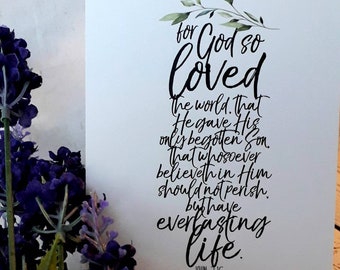 for God so
loved
the world, that
He gave His
only begotten Son,
that whosoever
believeth in Him
should not perish,
but have
everlasting
life.